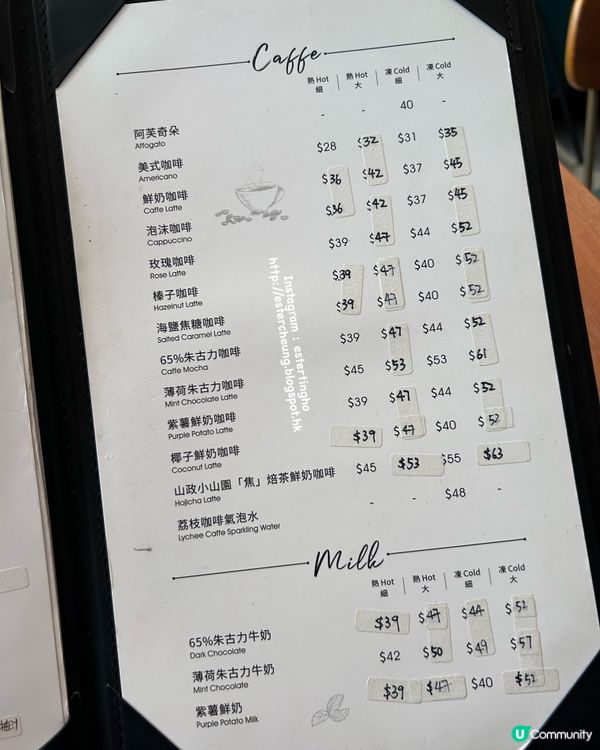 Caffe
熱 Hot 細 | 熱 Hot 大 | 凍 Cold 細 | 凍 Cold 大
阿芙奇朵 - - 40 -
Affogato
美式咖啡 $28 $32 $31 $35
Americano
鮮奶咖啡 $36 $42 $37 $45
Caffe Latte
泡沫咖啡 $36 $42 $37 $45
Cappuccino
玫瑰咖啡 $39 $47 $44 $52
Rose Latte
榛子咖啡 $39 $47 $40 $52
Hazelnut Latte
海鹽焦糖咖啡 $39 $47 $40 $52
Salted Caramel Latte
65%朱古力咖啡 $39 $47 $44 $52
Caffe Mocha
薄荷朱古力咖啡 $45 $53 $53 $61
Mint Chocolate Latte
紫薯鮮奶咖啡 $39 $47 $44 $52
Purple Potato Latte
椰子鮮奶咖啡 $39 $47 $40 $52
Coconut Latte
山政小山園「焦」焙茶鮮奶咖啡 $45 $53 $55 $63
Hojicha Latte
荔枝咖啡氣泡水 - - $48 -
Lychee Caffe Sparkling Water
Milk
熱 Hot 細 | 熱 Hot 大 | 凍 Cold 細 | 凍 Cold 大
65%朱古力牛奶 $39 $47 $44 $52
Dark Chocolate
薄荷朱古力牛奶 $42 $50 $49 $57
Mint Chocolate
紫薯鮮奶 $39 $47 $40 $52
Purple Potato Milk
Instagram : estertingho
http://estercheung.blogspot.hk
柚汁
U Community